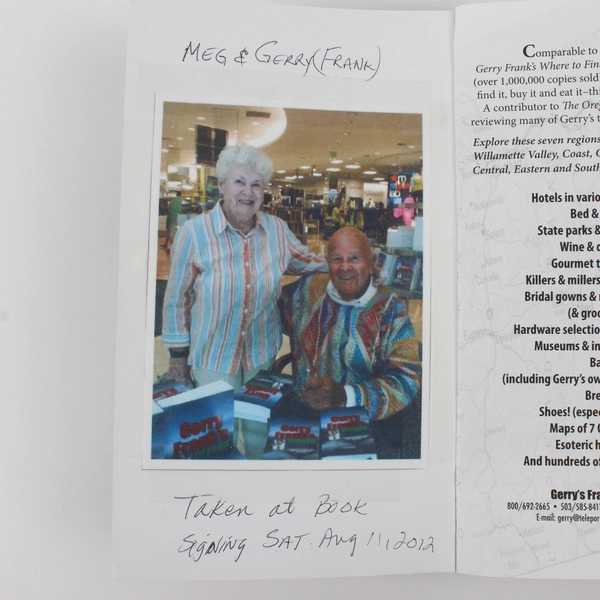 MEG & GERRY (FRANK)
Gerry
Frank's
Gerry
Frank's
Gerry
Frank's
Taken at Book
Signing SAT. Aug 11, 2012
Comparable to
Gerry Frank's Where to Fin
(over 1,000,000 copies sold
find it, buy it and eat it–thi
A contributor to The Ore
reviewing many of Gerry's t
Explore these seven regions
Willamette Valley, Coast, 
Central, Eastern and South
Hotels in vario
Bed &
State parks &
Wine & 
Gourmet t
Killers & millers
Bridal gowns &
(& groo
Hardware selectio
Museums & in
Ba
(including Gerry's ow
Bre
Shoes! (espe
Maps of 7
Esoteric h
And hundreds of
Gerry's Fra
800/692-2665 • 503/585-841
E-mail: gerry@telepor